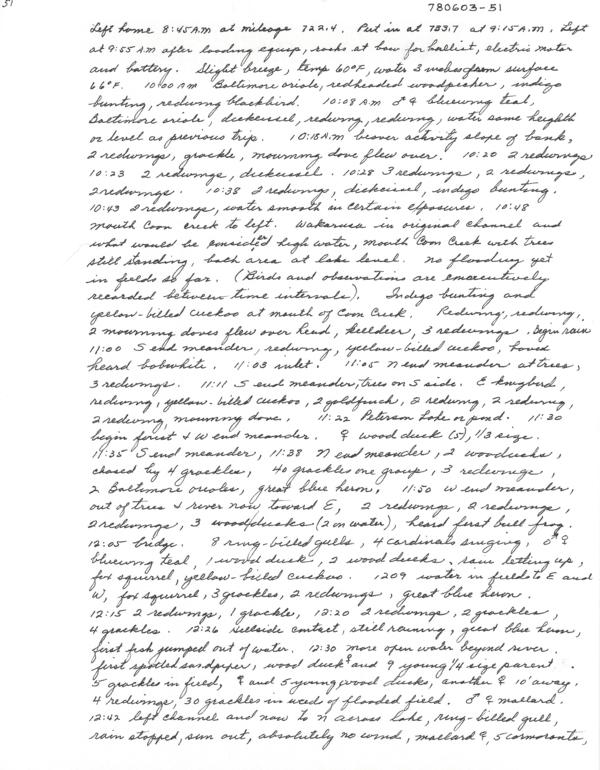 51
780603-51
Left home 8:45 A.M at mileage 722.4. Put in at 733.7 at 9:15 A.M. Left
at 9:55 A.M after loading equip, rocks at bow for ballist, electric motor
and battery. Slight breeze, temp 60°F, water 3 inches from surface
66°F. 10:00 AM Baltimore oriole, redheaded woodpecker, indigo
bunting, redwing blackbird. 10:08 AM ♂ ♀ bluewing teal,
Baltimore oriole, dickcissel, redwing, redwing, water same heighth
or level as previous trip. 10:18 A.M beaver activity slope of bank,
2 redwings, grackle, mourning dove flew over. 10:20 2 redwings
10:23 2 redwings, dickcissel. 10:28 3 redwings, 2 redwings,
2 redwings. 10:38 2 redwings, dickcissel, indigo bunting.
10:43 2 redwings, water smooth in certain exposures. 10:48
mouth Coon creek to left. Wakarusa in original channel and
what would be considered high water, mouth Coon Creek with trees
still standing, both area at lake level. no flooding yet
in fields so far. (Birds and observations are consecutively
recorded between time intervals). Indigo bunting and
yellow-billed cuckoo at mouth of Coon Creek. Redwing, redwing,
2 mourning doves flew over head, killdeer, 3 redwings. begin rain
11:00 S end meander, redwing, yellow-billed cuckoo,
heard bobwhite. 11:03 inlet. 11:05 N end meander at trees,
3 redwings. 11:11 S end meander, trees on S side. E kingbird,
redwing, yellow-billed cuckoo, 2 goldfinch, 2 redwing, 2 redwing,
2 redwing, mourning dove. 11:22 Peterson Lake or pond. 11:30
begin forest & W end meander. ♀ wood duck (5), 1/3 size.
11:35 S end meander, 11:38 N end meander, 2 woodducks,
chased by 4 grackles, 40 grackles one group, 3 redwings,
2 Baltimore orioles, great blue heron, 11:50 W end meander,
out of trees & river now toward E, 2 redwings, 2 redwings,
2 redwings, 3 wood ducks (2 on water), heard first bull frog.
12:05 bridge. 8 ring-billed gulls, 4 cardinals singing, ♂ ♀
bluewing teal, 1 wood duck, 2 wood ducks, rain letting up,
fox squirrel, yellow-billed cuckoo. 1209 water in field to E and
W, fox squirrel, 3 grackles, 2 redwings, great blue heron.
12:15 2 redwings, 1 grackle, 12:20 2 redwings, 2 grackles,
4 grackles. 12:26 hillside contact, still raining, great blue heron,
first fish jumped out of water. 12:30 more open water beyond river.
first spotted sandpiper, wood duck ♀ and 9 young 1/4 size parent.
5 grackles in field, ♀ and 5 young wood ducks, another ♀ 10' away.
4 redwings, 30 grackles in weeds of flooded field. ♂ ♀ mallard.
12:42 left channel and now to N across Lake, ring-billed gull,
rain stopped, sun out, absolutely no wind, mallard ♀, 5 cormorants,